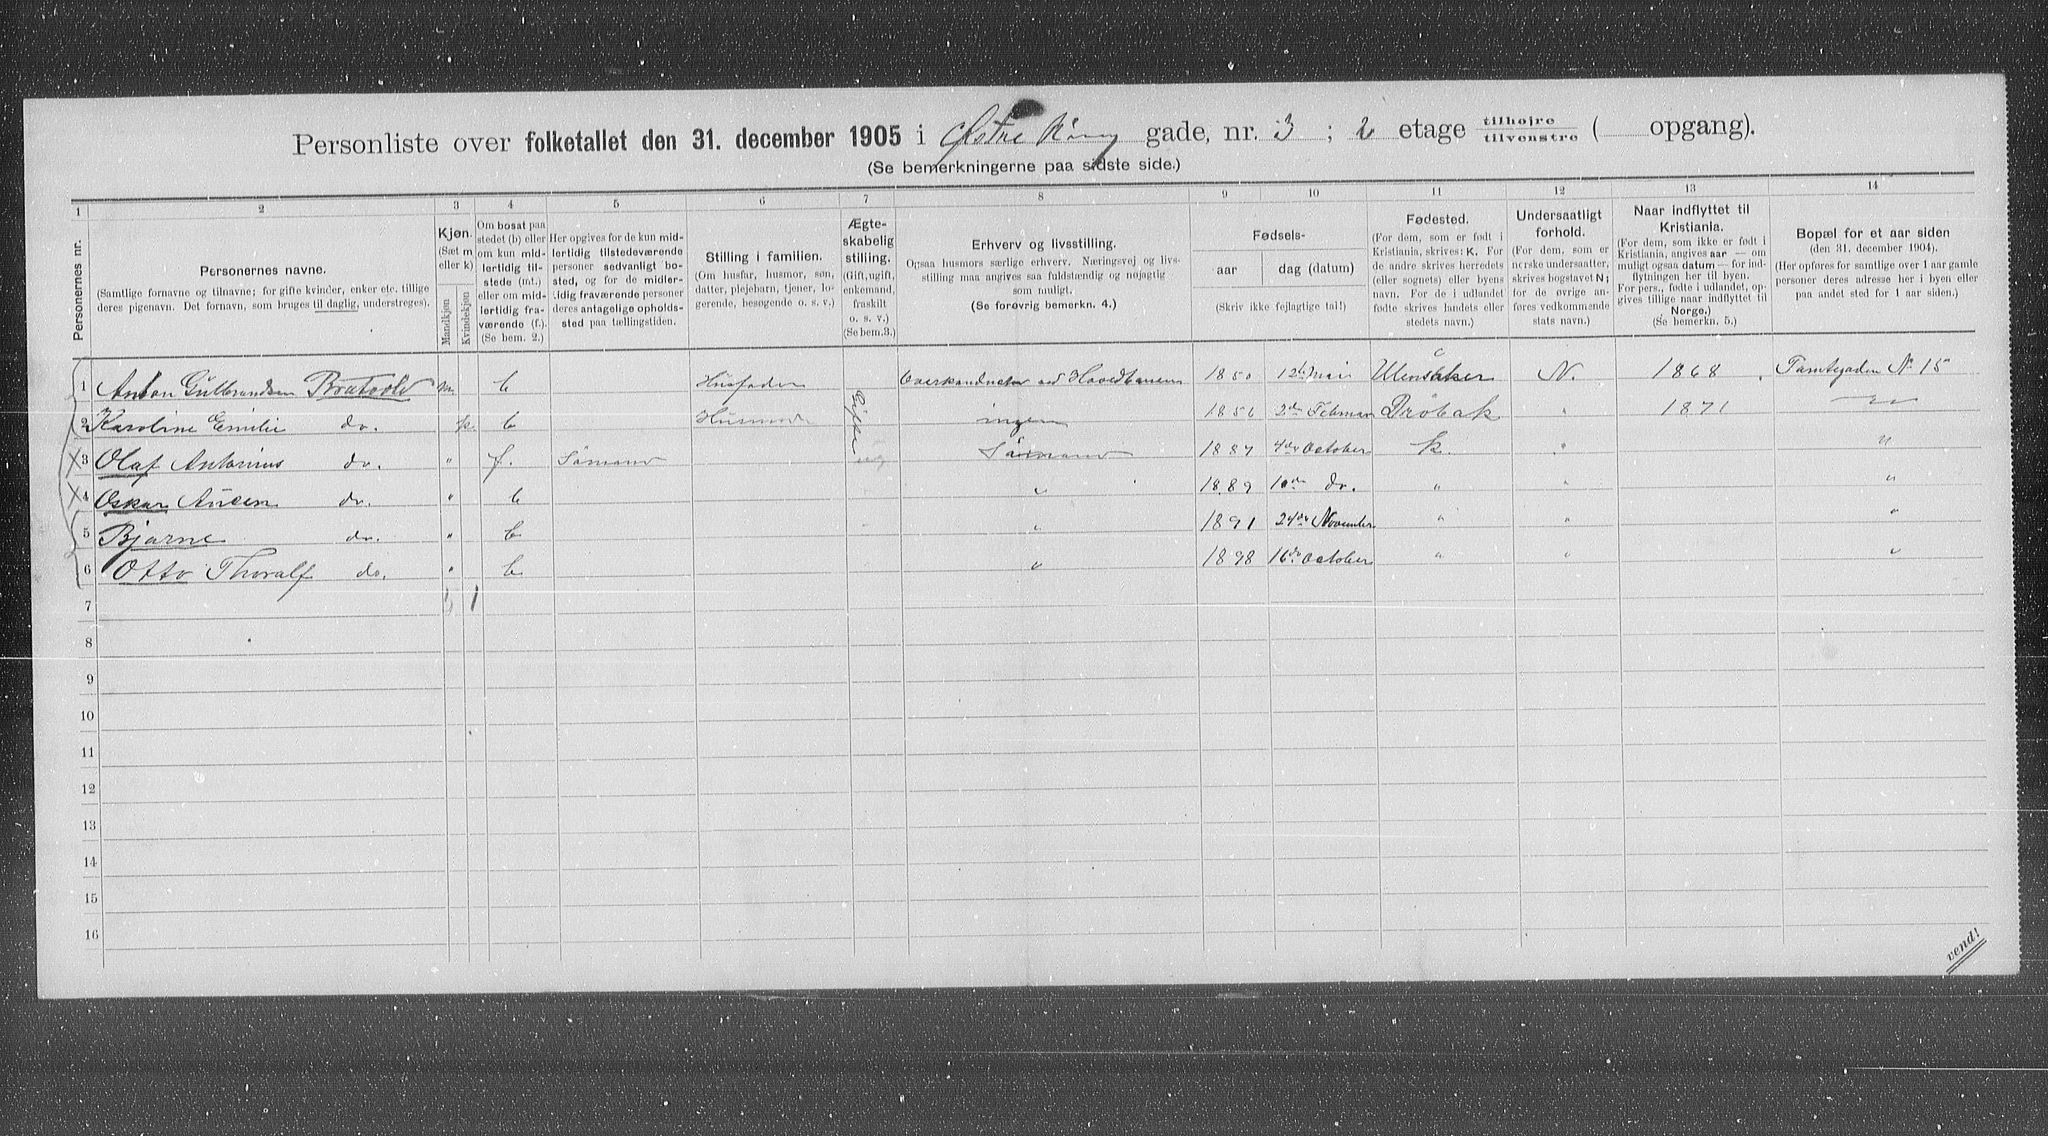 Personliste over folketallet den 31. december 1905 i Østre gade, nr. 3 ; 2 etage tilhøjre tilvenstre ( opgang).
(Se bemerkningerne paa sidste side.)
1 2 3 4 5 6 7 8 9 10 11 12 13 14
Personernes nr.
Personernes navne.
(Samtlige fornavne og tilnavne; for gifte kvinder, enker etc. tillige
deres pigenavn. Det fornavn, som bruges til daglig, understreges).
Kjøn.
(Sæt m
eller k)
Mandkjøn
Kvindekjøn
Om bosat paa
stedet (b) eller
om kun mid-
lertidig til-
stede (mt.)
eller om mid-
lertidig fra-
værende (f.)
(Se bem. 2.)
Her opgives for de kun mid-
lertidig tilstedeværende
personer sedvanligt bo-
sted, og for de midler-
tidig fraværende personer
deres antagelige opholds-
sted paa tællingstiden.
Stilling i familien.
(Om husfar, husmor, søn,
datter, plejebarn, tjener, lo-
gerende, besøgende o. s. v.)
Ægte-
skabelig
stilling.
(Gift, ugift,
enkemand,
fraskilt
o. s. v.)
(Se bem.3.)
Erhverv og livsstilling.
Ogsaa husmors særlige erhverv. Næringsvej og livs-
stilling maa angives saa fuldstændig og nøjagtig
som muligt.
(Se forøvrig bemerkn. 4.)
Fødsels-
aar dag (datum)
(Skriv ikke fejlagtige tal!)
Fødested.
(For dem, som er født i
Kristiania, skrives: K. For
de andre skrives herredets
(eller sognets) eller byens
navn. For de i udlandet
fødte skrives landets eller
stedets navn.)
Undersaatligt
forhold.
(For dem, som er
norske undersaatter,
skrives bogstavet N;
for de øvrige an-
føres vedkommende
stats navn.)
Naar indflyttet til
Kristiania.
(For dem, som ikke er født i
Kristiania, angives aar — om
muligt ogsaa datum — for ind-
flytningen her til byen.
For pers., fødte i udlandet, op-
gives tillige naar indflyttet til
Norge.)
(Se bemerkn. 5.)
Bopæl for et aar siden
(den 31. december 1904).
(Her opføres for samtlige over 1 aar gamle
personer deres adresse her i byen eller
paa andet sted for 1 aar siden.)
1 Anton Gulbrandsen Bratvold m b Husfader Gift Overkonduktør ved Hovedbanen 1850 12te Mai Ulensaker N. 1868 Tomtegaden N 15
2 Karoline Emilie do. k. b Husmoder ingen 2den Februar Drøbak " 1871 "
3 Olaf Antonius do. " f. Sømand Sømand 1887 4de October K. " "
4 Oskar do. " b " 1889 10de do. " " "
5 Bjarne do. " b " 1891 24de November " " "
6 Otto Thoralf do. " b " 1898 16de October " " "
7 1
8
9
10
11
12
13
14
15
16
vend!